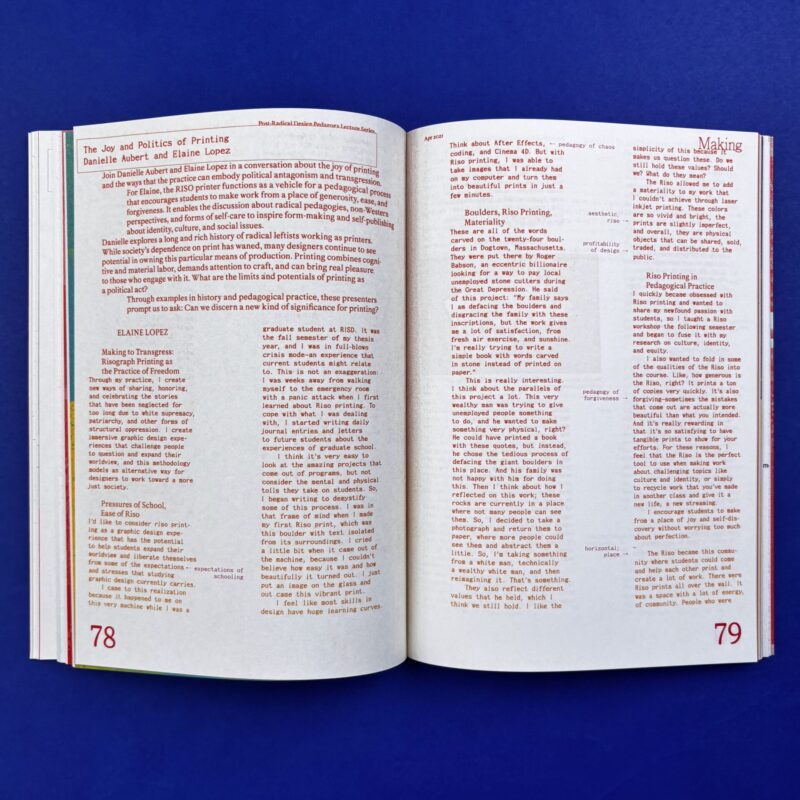 Post-Radical Design Pedagogy Lecture Series
The Joy and Politics of Printing
Danielle Aubert and Elaine Lopez
Join Danielle Aubert and Elaine Lopez in a conversation about the joy of printing
and the ways that the practice can embody political antagonism and transgression.
For Elaine, the RISO printer functions as a vehicle for a pedagogical process
that encourages students to make work from a place of generosity, ease, and
forgiveness. It enables the discussion about radical pedagogies, non-Western
perspectives, and forms of self-care to inspire form-making and self-publishing
about identity, culture, and social issues.
Danielle explores a long and rich history of radical leftists working as printers.
While society's dependence on print has waned, many designers continue to see
potential in owning this particular means of production. Printing combines cogni-
tive and material labor, demands attention to craft, and can bring real pleasure
to those who engage with it. What are the limits and potentials of printing as
a political act?
Through examples in history and pedagogical practice, these presenters
prompt us to ask: Can we discern a new kind of significance for printing?
ELAINE LOPEZ
Making to Transgress:
Risograph Printing as
the Practice of Freedom
Through my practice, I create
new ways of sharing, honoring,
and celebrating the stories
that have been neglected for
too long due to white supremacy,
patriarchy, and other forms of
structural oppression. I create
immersive graphic design expe-
riences that challenge people
to question and expand their
worldview, and this methodology
models an alternative way for
designers to work toward a more
just society.
Pressures of School,
Ease of Riso
I'd like to consider riso print-
ing as a graphic design expe-
rience that has the potential
to help students expand their
worldview and liberate themselves
from some of the expectations
and stresses that studying
graphic design currently carries.
I came to this realization
because it happened to me on
this very machine while I was a
expectations of
schooling
graduate student at RISD. It was
the fall semester of my thesis
year, and I was in full-blown
crisis mode—an experience that
current students might relate
to. This is not an exaggeration:
I was weeks away from walking
myself to the emergency room
with a panic attack when I first
learned about Riso printing. To
cope with what I was dealing
with, I started writing daily
journal entries and letters
to future students about the
experiences of graduate school.
I think it's very easy to
look at the amazing projects that
come out of programs, but not
consider the mental and physical
tolls they take on students. So,
I began writing to demystify
some of this process. I was in
that frame of mind when I made
my first Riso print, which was
this boulder with text isolated
from its surroundings. I cried
a little bit when it came out of
the machine, because I couldn't
believe how easy it was and how
beautifully it turned out. I just
put an image on the glass and
out came this vibrant print.
I feel like most skills in
design have huge learning curves.
78
Apr 2021
Making
Think about After Effects,
coding, and Cinema 4D. But with
Riso printing, I was able to
take images that I already had
on my computer and turn them
into beautiful prints in just a
few minutes.
← pedagogy of chaos
Boulders, Riso Printing,
Materiality
These are all of the words
carved on the twenty-four boul-
ders in Dogtown, Massachusetts.
They were put there by Roger
Babson, an eccentric billionaire
looking for a way to pay local
unemployed stone cutters during
the Great Depression. He said
of this project: "My family says
I am defacing the boulders and
disgracing the family with these
inscriptions, but the work gives
me a lot of satisfaction, from
fresh air exercise, and sunshine.
I'm really trying to write a
simple book with words carved
in stone instead of printed on
paper."
This is really interesting.
I think about the parallels of
this project a lot. This very
wealthy man was trying to give
unemployed people something
to do, and he wanted to make
something very physical, right?
He could have printed a book
with these quotes, but instead,
he chose the tedious process of
defacing the giant boulders in
this place. And his family was
not happy with him for doing
this. Then I think about how I
reflected on this work; these
rocks are currently in a place
where not many people can see
them. So, I decided to take a
photograph and return them to
paper, where more people could
see them and abstract them a
little. So, I'm taking something
from a white man, technically
a wealthy white man, and then
reimagining it. That's something.
They also reflect different
values that he held, which I
think we still hold. I like the
aesthetic,
riso →
profitability
of design →
pedagogy of
forgiveness →
horizontal;
place →
simplicity of this because it
makes us question these. Do we
still hold these values? Should
we? What do they mean?
The Riso allowed me to add
a materiality to my work that
I couldn't achieve through laser
inkjet printing. These colors
are so vivid and bright, the
prints are slightly imperfect,
and overall, they are physical
objects that can be shared, sold,
traded, and distributed to the
public.
Riso Printing in
Pedagogical Practice
I quickly became obsessed with
Riso printing and wanted to
share my newfound passion with
students, so I taught a Riso
workshop the following semester
and began to fuse it with my
research on culture, identity,
and equity.
I also wanted to fold in some
of the qualities of the Riso into
the course. Like, how generous is
the Riso, right? It prints a ton
of copies very quickly. It's also
forgiving—sometimes the mistakes
that come out are actually more
beautiful than what you intended.
And it's really rewarding in
that it's so satisfying to have
tangible prints to show for your
efforts. For these reasons, I
feel that the Riso is the perfect
tool to use when making work
about challenging topics like
culture and identity, or simply
to recycle work that you've made
in another class and give it a
new life, a new streaming.
I encourage students to make
from a place of joy and self-dis-
covery without worrying too much
about perfection.
The Riso became this commu-
nity where students could come
and help each other print and
create a lot of work. There were
Riso prints all over the wall. It
was a space with a lot of energy,
of community. People who were
79